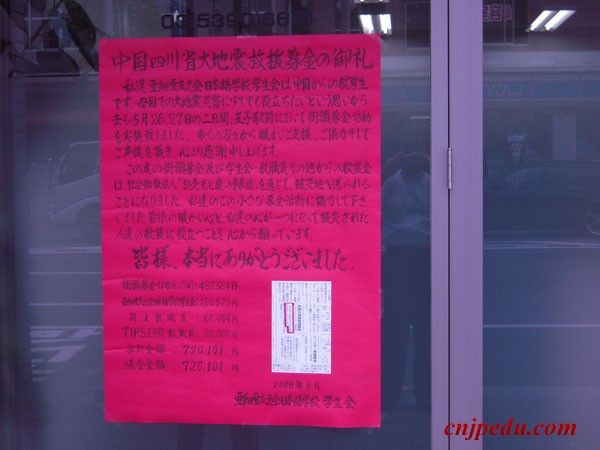 03 5390166
中国四川省大地震救援募金の御礼
私達亜細亜友之会日本語学校学生会は中国からの就学生
です。母国での大地震災害に少しでも役立ちたいという思いから
去る5月26.27日の二日間、王子駅前において街頭募金活動
を実施致しました。多くの方々から暖かいご支援、ご協力そして
ご声援を頂き、心より感謝申し上げます。
この度の街頭募金及び学生会・教職員その他からの救援金
は、社会福祉法人「読売光と愛の事業団」を通じて、被災地へ送られる
ことになりました。私達のこの小さな募金活動に協力して下さ
いました皆様の暖かい心と、私達の心が一つになって被災された
人達の救援に役立つことを心から願っています。
皆様、本当にありがとうございました。
街頭募金 : 487,564円
同上教職員 : 61,964円
TIPS53校教職員: 20,000円
合計金額 : 720,101円
送金金額 : 720,101円
2008年6月
亜細亜友之会日本語学校学生会
cnjpedu.com